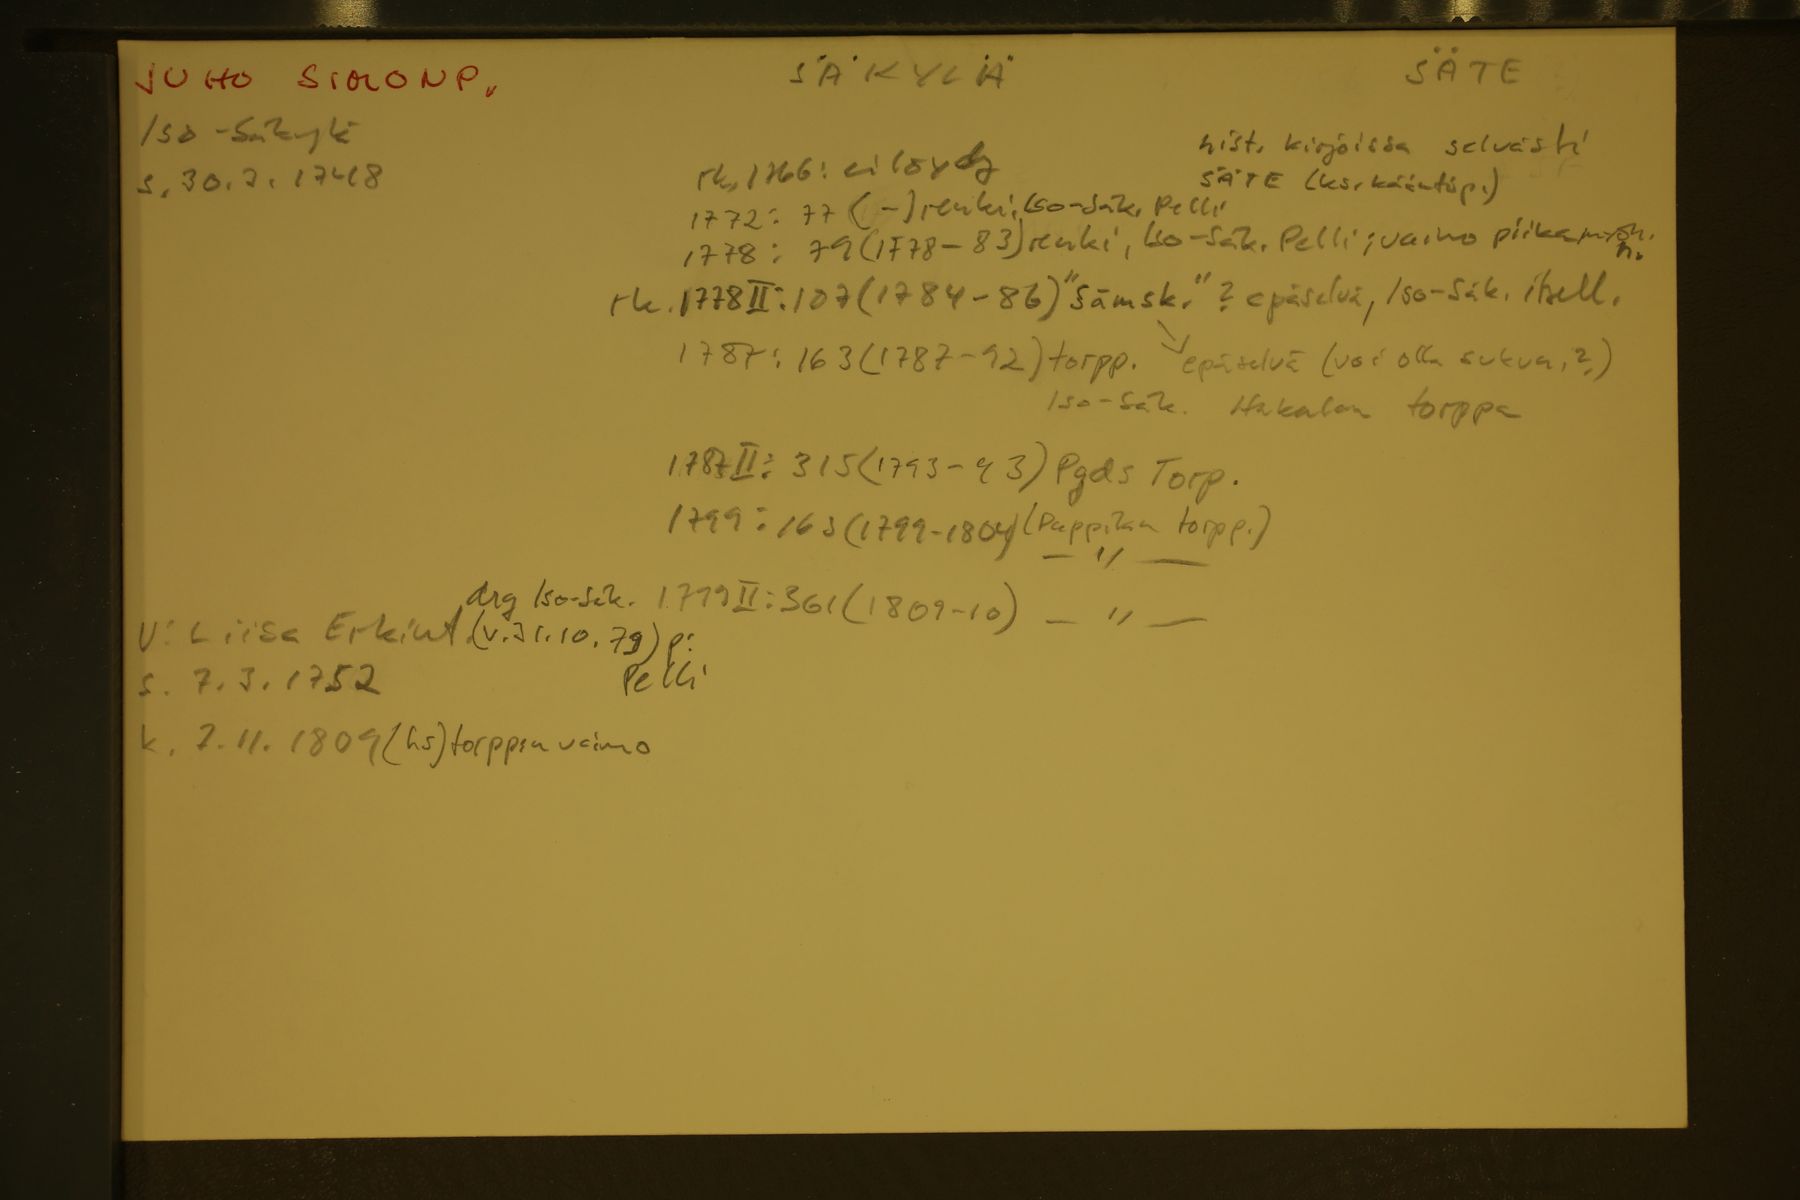 JUHO SIMONP. SÄKYLÄ SÄTE
Iso-Säkylä
hist. kirjoissa selvästi
s. 30.7.1748
rk. 1766: ei löydy
SÄTE (ks. kääntöp.)
1772: 77 (-) renki, Iso-Säk. Pelli
1778: 79 (1778-83) renki, Iso-Säk. Pelli; vaimo piika
rk. 1778 II: 107 (1784-86) "Sämsk." ? epäselvä, Iso-Säk. itsell.
1787: 163 (1787-92) torpp. epäselvä (voi olla sukun.?)
Iso-Säk. Hakalan torppa
1787 II: 315 (1793-93) Pgds Torp.
1799: 163 (1799-1804) (Pappilan torpp.)
— " —
drg Iso-Säk. 1799 II: 361 (1809-10) — " —
V: Liisa Erkint. (v. 31.10.79) p:
s. 7.3.1752 Pelli
k. 7.11.1809 (hs) torpparin vaimo